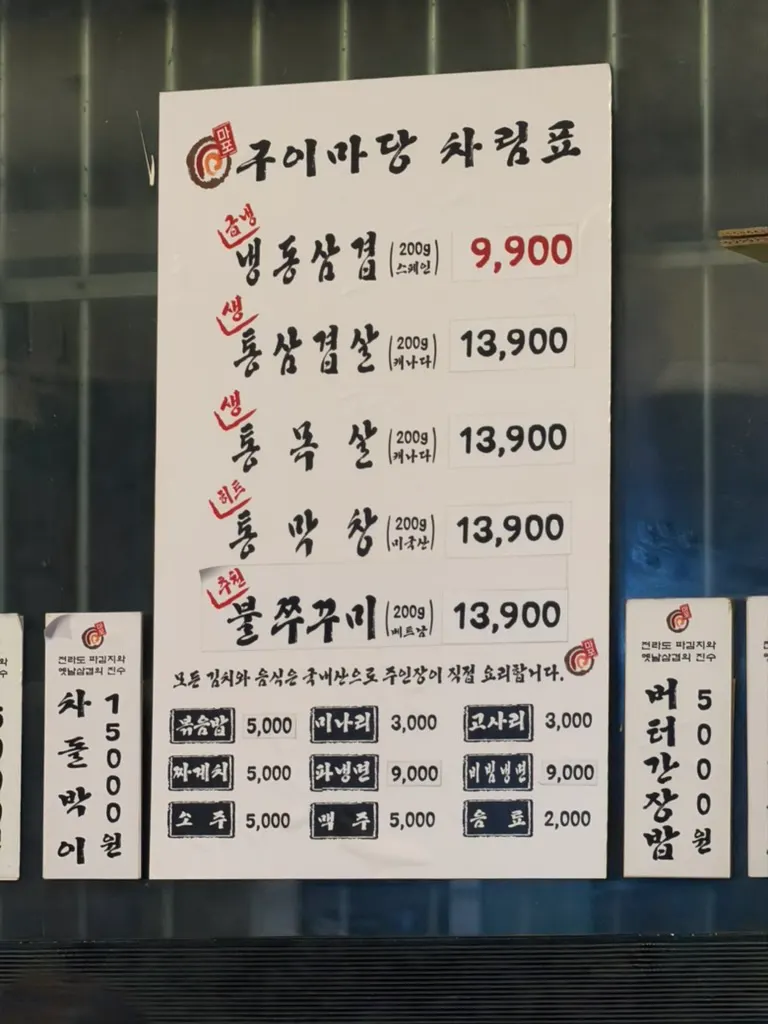 마포 구이마당 차림표
급냉
냉동삼겹 (200g 스페인) 9,900
생
통삼겹살 (200g 캐나다) 13,900
생
통목살 (200g 캐나다) 13,900
히트
통막창 (200g 미국산) 13,900
추천
불쭈꾸미 (200g 베트남) 13,900
마포
모든 김치와 음식은 국내산으로 주인장이 직접 요리합니다.
볶음밥 5,000 미나리 3,000 고사리 3,000
찌개치 5,000 파냉면 9,000 비빔냉면 9,000
소주 5,000 맥주 5,000 음료 2,000
전라도 파김치와
옛날삼겹의 진수
차돌박이
15000원
전라도 파김치와
옛날삼겹의 진수
버터간장밥
5000원